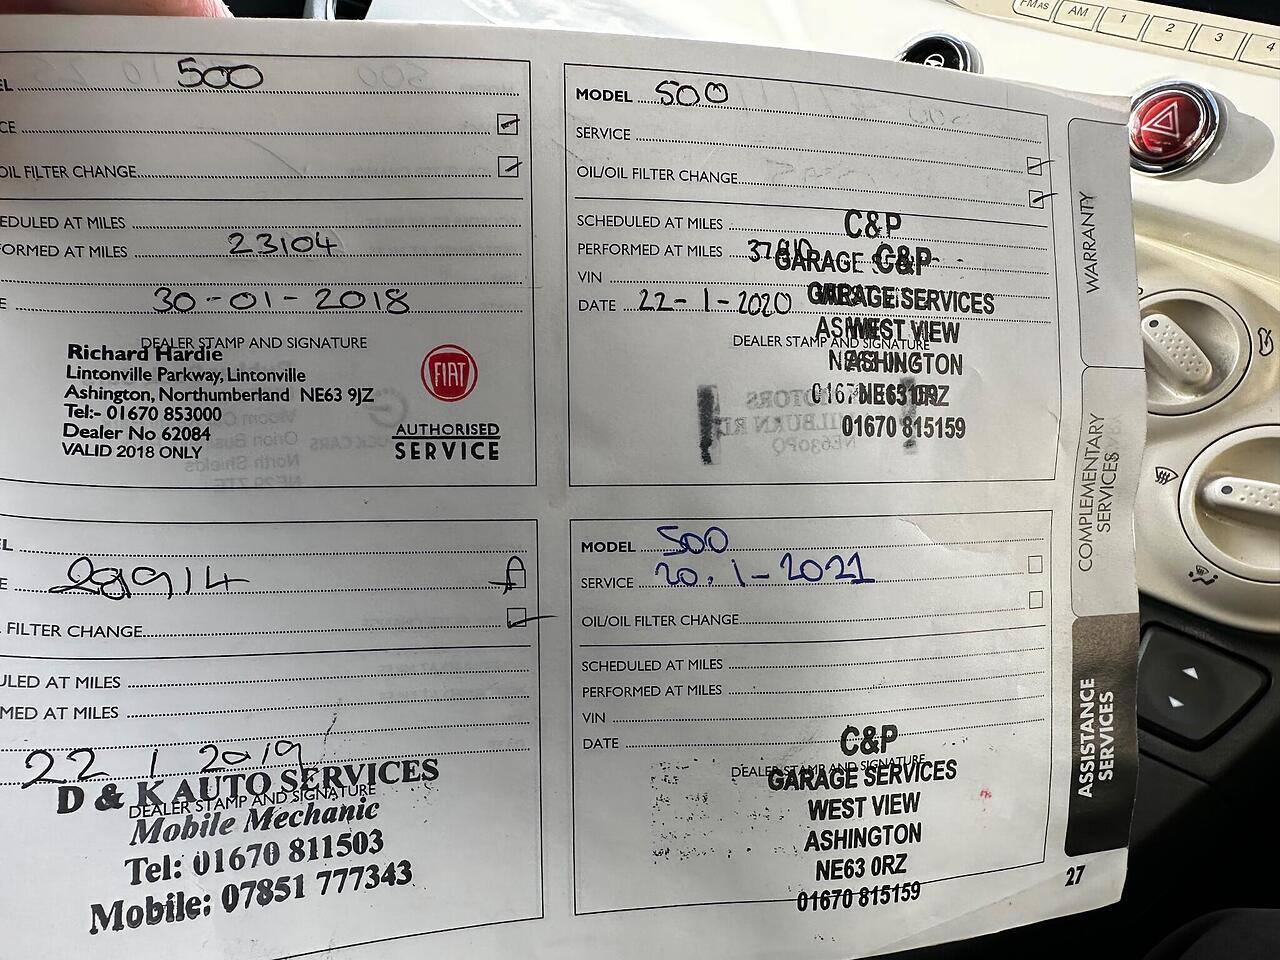 FM AS AM 1 2 3 4
EL 500
CE
OIL FILTER CHANGE
EDULED AT MILES
FORMED AT MILES 23104
E 30-01-2018
DEALER STAMP AND SIGNATURE
Richard Hardie
Lintonville Parkway, Lintonville
Ashington, Northumberland NE63 9JZ
Tel:- 01670 853000
Dealer No 62084
VALID 2018 ONLY
FIAT
AUTHORISED
SERVICE
MODEL 500
SERVICE
OIL/OIL FILTER CHANGE
SCHEDULED AT MILES
PERFORMED AT MILES
VIN
DATE 22-1-2020
DEALER STAMP AND SIGNATURE
C&P
GARAGE
C&P
GARAGE SERVICES
WEST VIEW
ASHINGTON
NE63 0RZ
01670 815159
EL
E 28914
FILTER CHANGE
ULED AT MILES
MED AT MILES
22 1 2019
DEALER STAMP AND SIGNATURE
D & K AUTO SERVICES
Mobile Mechanic
Tel: 01670 811503
Mobile: 07851 777343
MODEL 500
SERVICE 20.1-2021
OIL/OIL FILTER CHANGE
SCHEDULED AT MILES
PERFORMED AT MILES
VIN
DATE
DEALER STAMP AND SIGNATURE
C&P
GARAGE SERVICES
WEST VIEW
ASHINGTON
NE63 0RZ
01670 815159
WARRANTY
COMPLEMENTARY
SERVICES
ASSISTANCE
SERVICES
27